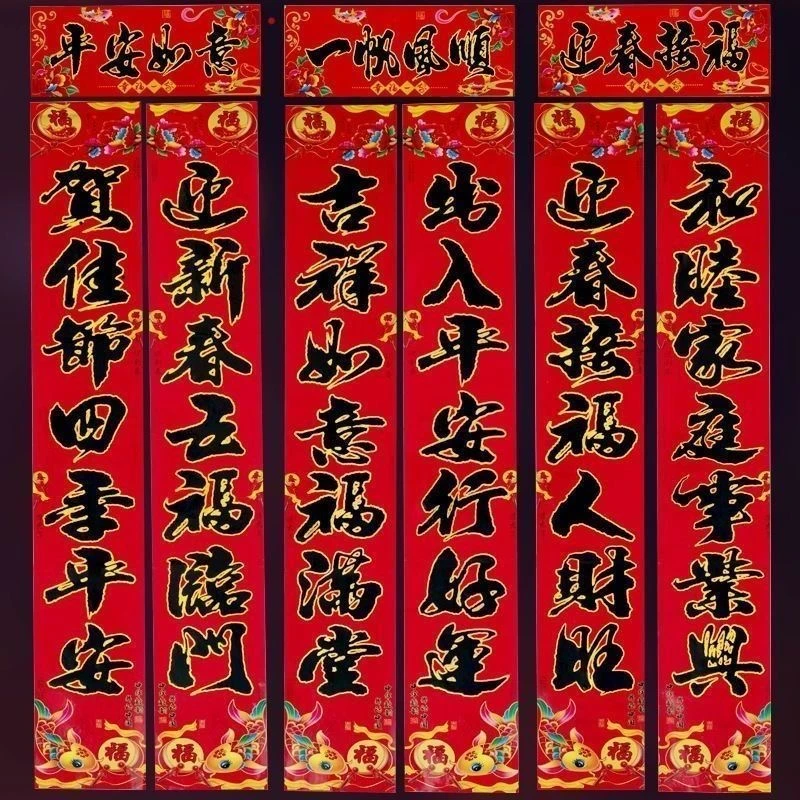 平安如意
一帆風順
迎春接福
賀佳節四季平安
迎新春五福臨門
吉祥如意福滿堂
出入平安行好運
迎春接福人財旺
和睦家庭事業興
福
福
福
福
福
福
福
福
福